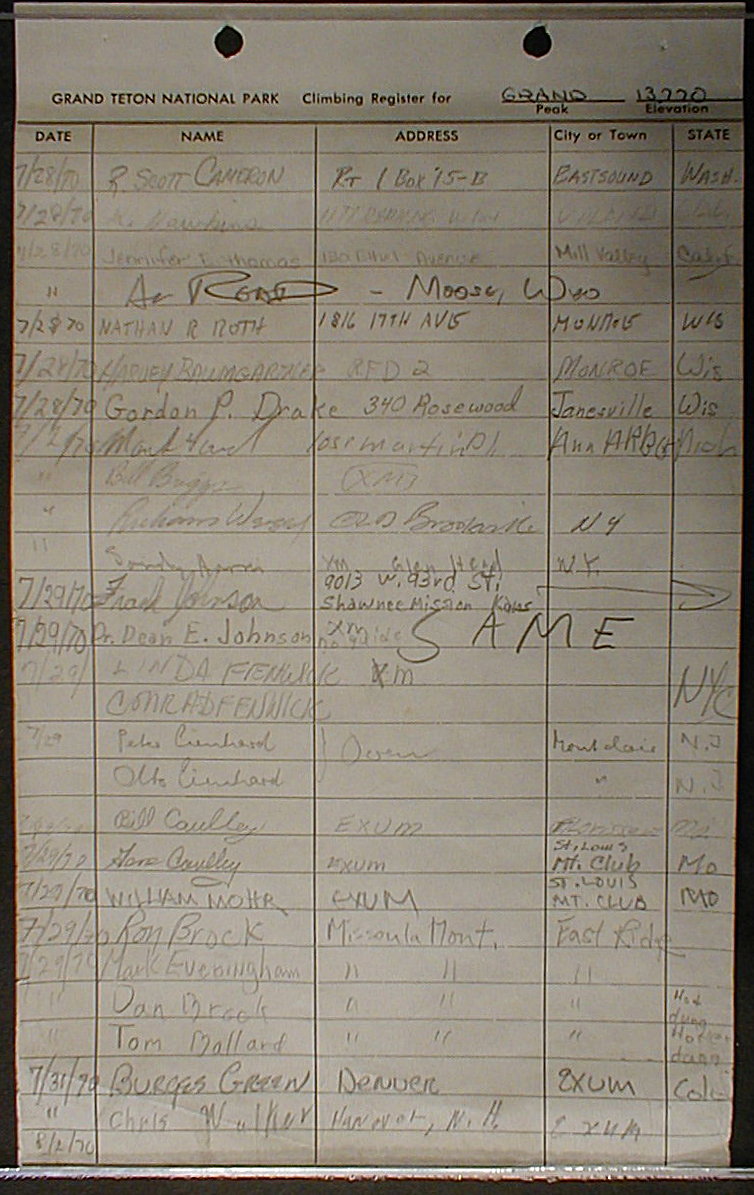 GRAND TETON NATIONAL PARK Climbing Register for GRAND 13,770
Peak Elevation
DATE NAME ADDRESS City or Town STATE
7/28/70 R SCOTT CAMERON RT 1 BOX 75-B EASTSOUND WASH.
7/28/70 Hawkins
7/28/70 Jennifer E. Thomas 130 Ethel Avenue Mill Valley Calif
" Al READ - MOOSE, WYO
7/28/70 NATHAN R ROTH 1816 17TH AVE MONROE WIS
7/28/70 HARVEY BAUMGARTNER RFD 2 MONROE Wis
7/28/70 Gordon P. Drake 340 Rosewood Janesville Wis
Mark Ann ARBOR Mich
" Bill Briggs (XM)
" Old Brookville NY
" Glen Head N.Y.
7/29/70 Frank Johnson 9013 W. 93rd St.
Shawnee Mission Kans
7/29/70 Dr. Dean E. Johnson XM no guide SAME
7/29/ LINDA FENWICK XM NYC
CONRAD FENWICK
7/29 Peter Lienhard Owen Montclair N.J
Otto Lienhard " N.J.
Bill Caulley EXUM Mo
St. Louis
7/29/70 Caulley exum Mt. Club Mo
ST. LOUIS
7/29/70 WILLIAM MOHR EXUM MT. CLUB MO
7/29/70 Ron Brock Missoula Mont. East Ridge
7/29/70 Mark Everingham " " "
" Dan Brock " " " Hot dung
" Tom Ballard " " " Hotter dung
7/31/70 BURGES GREEN DENVER EXUM Colo
" Chris Walker Hanover, N.H. EXUM
8/2/70